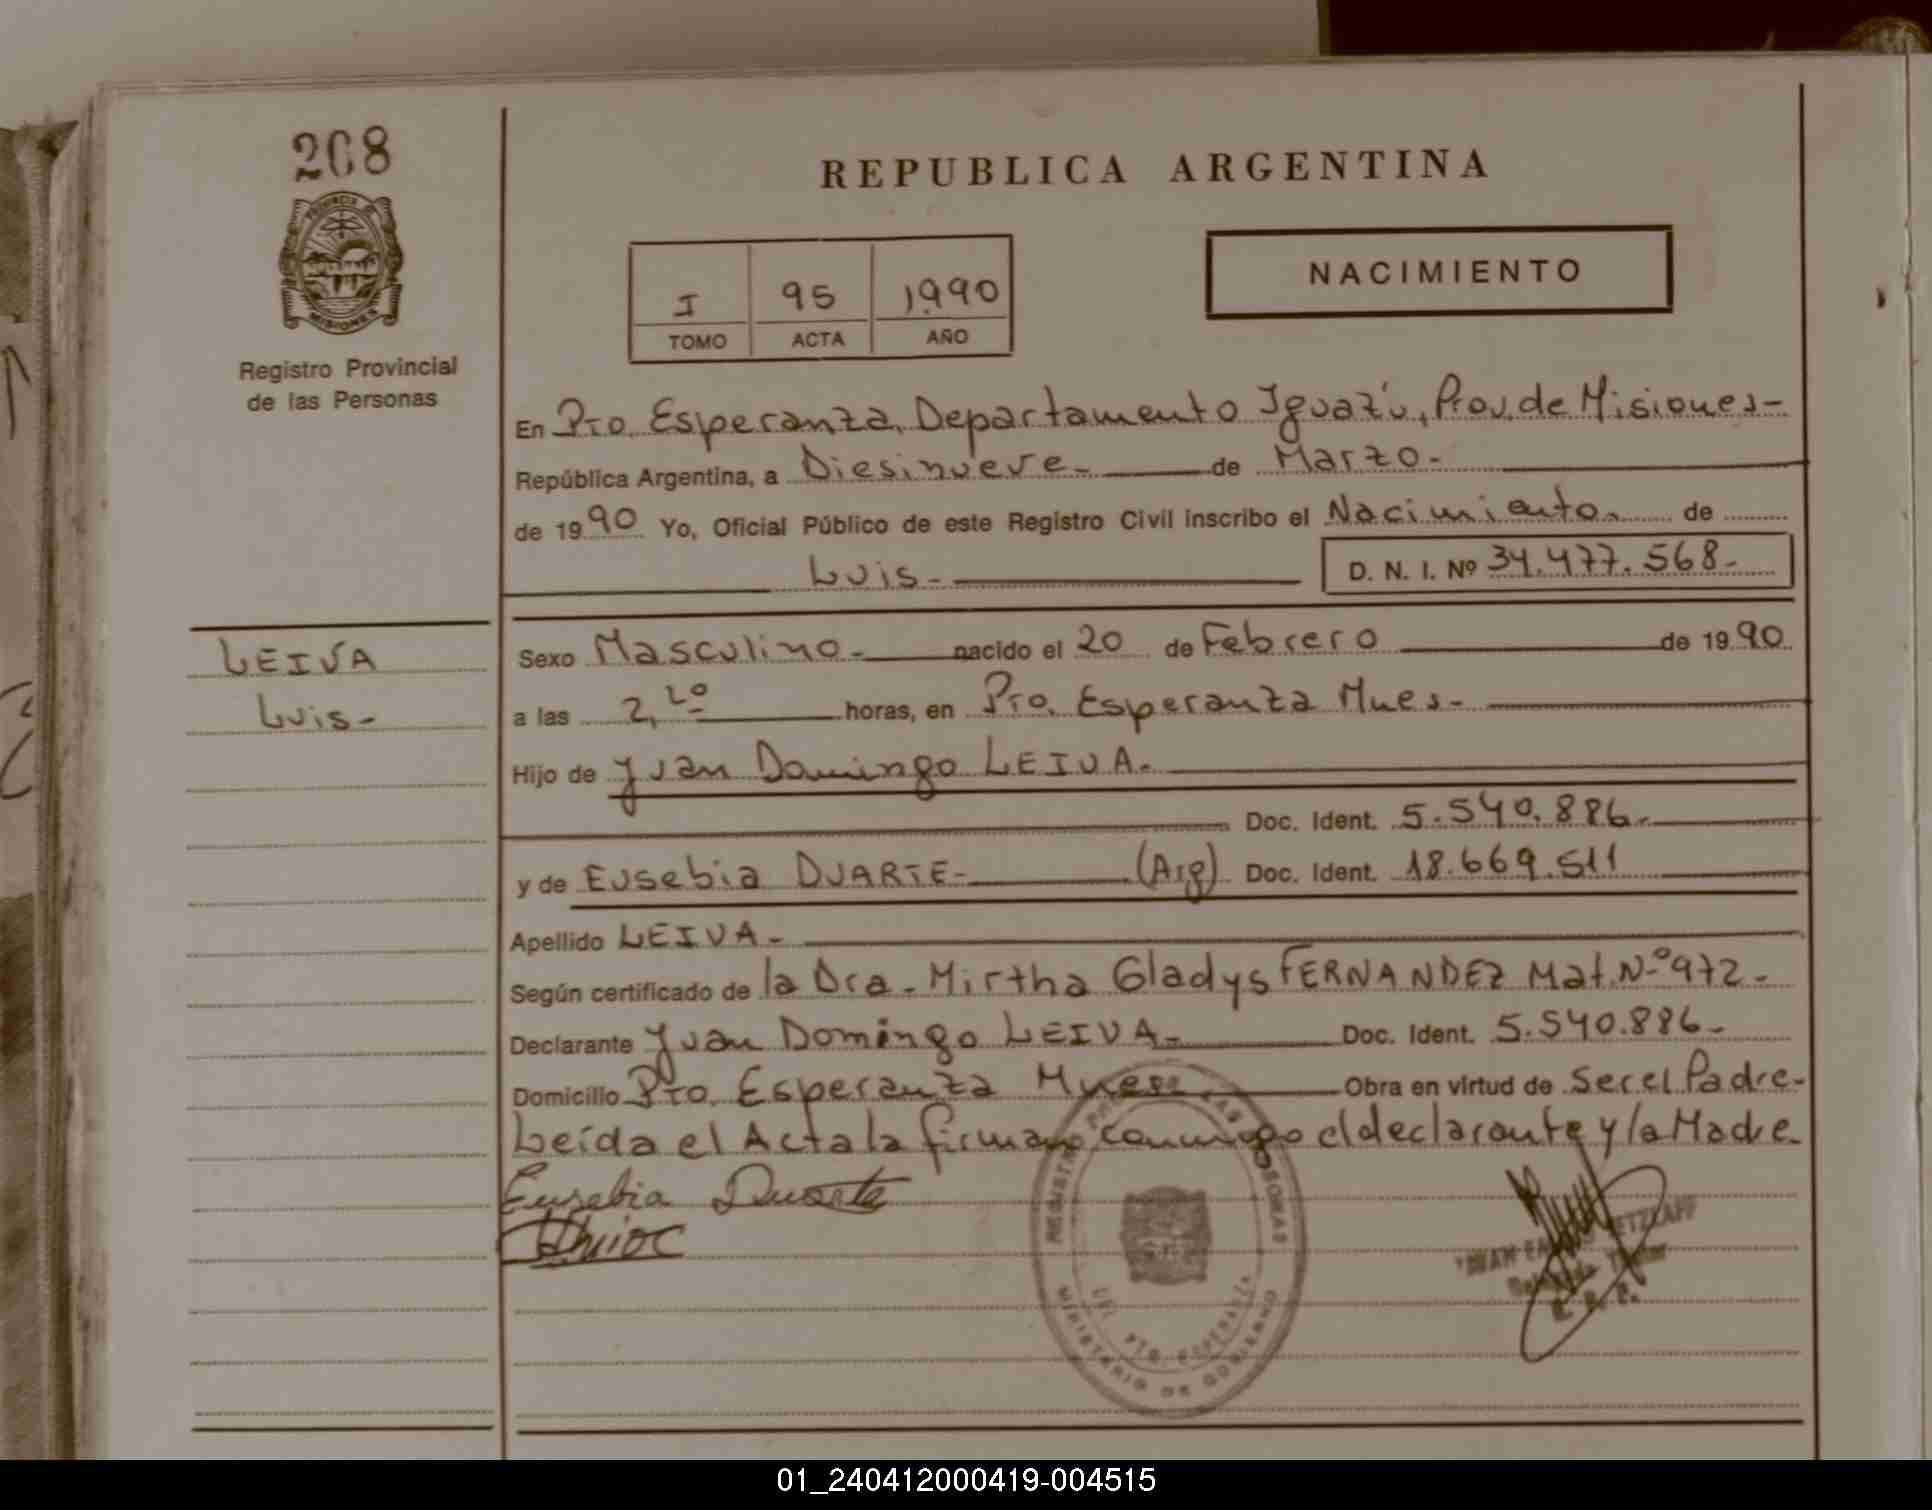 208
PROVINCIA DE
MISIONES
Registro Provincial
de las Personas
REPUBLICA ARGENTINA
I 95 1990
TOMO ACTA AÑO
NACIMIENTO
En Pto. Esperanza, Departamento Iguazú, Prov. de Misiones-
República Argentina, a Diesinueve- de Marzo-
de 1990 Yo, Oficial Público de este Registro Civil inscribo el Nacimiento. de
Luis- D. N. I. Nº 34.477.568-
LEIVA
Luis-
Sexo Masculino- nacido el 20 de Febrero de 1990
a las 2, horas, en Pto. Esperanza Mnes-
Hijo de Juan Domingo LEIVA.
Doc. Ident. 5.540.886-
y de Eusebia DUARTE- (Arg) Doc. Ident. 18.669.511
Apellido LEIVA-
Según certificado de la Dra. Mirtha Gladys FERNANDEZ Mat.Nº 972-
Declarante Juan Domingo LEIVA- Doc. Ident. 5.540.886-
Domicilio Pto. Esperanza Mnes. Obra en virtud de Ser el Padre-
Leída el Acta la firman conmigo el declarante y la Madre.
Eusebia Duarte
REGISTRO PERSONAS
PTO. ESPERANZA
MINISTERIO DE GOBIERNO
JUAN
01_240412000419-004515